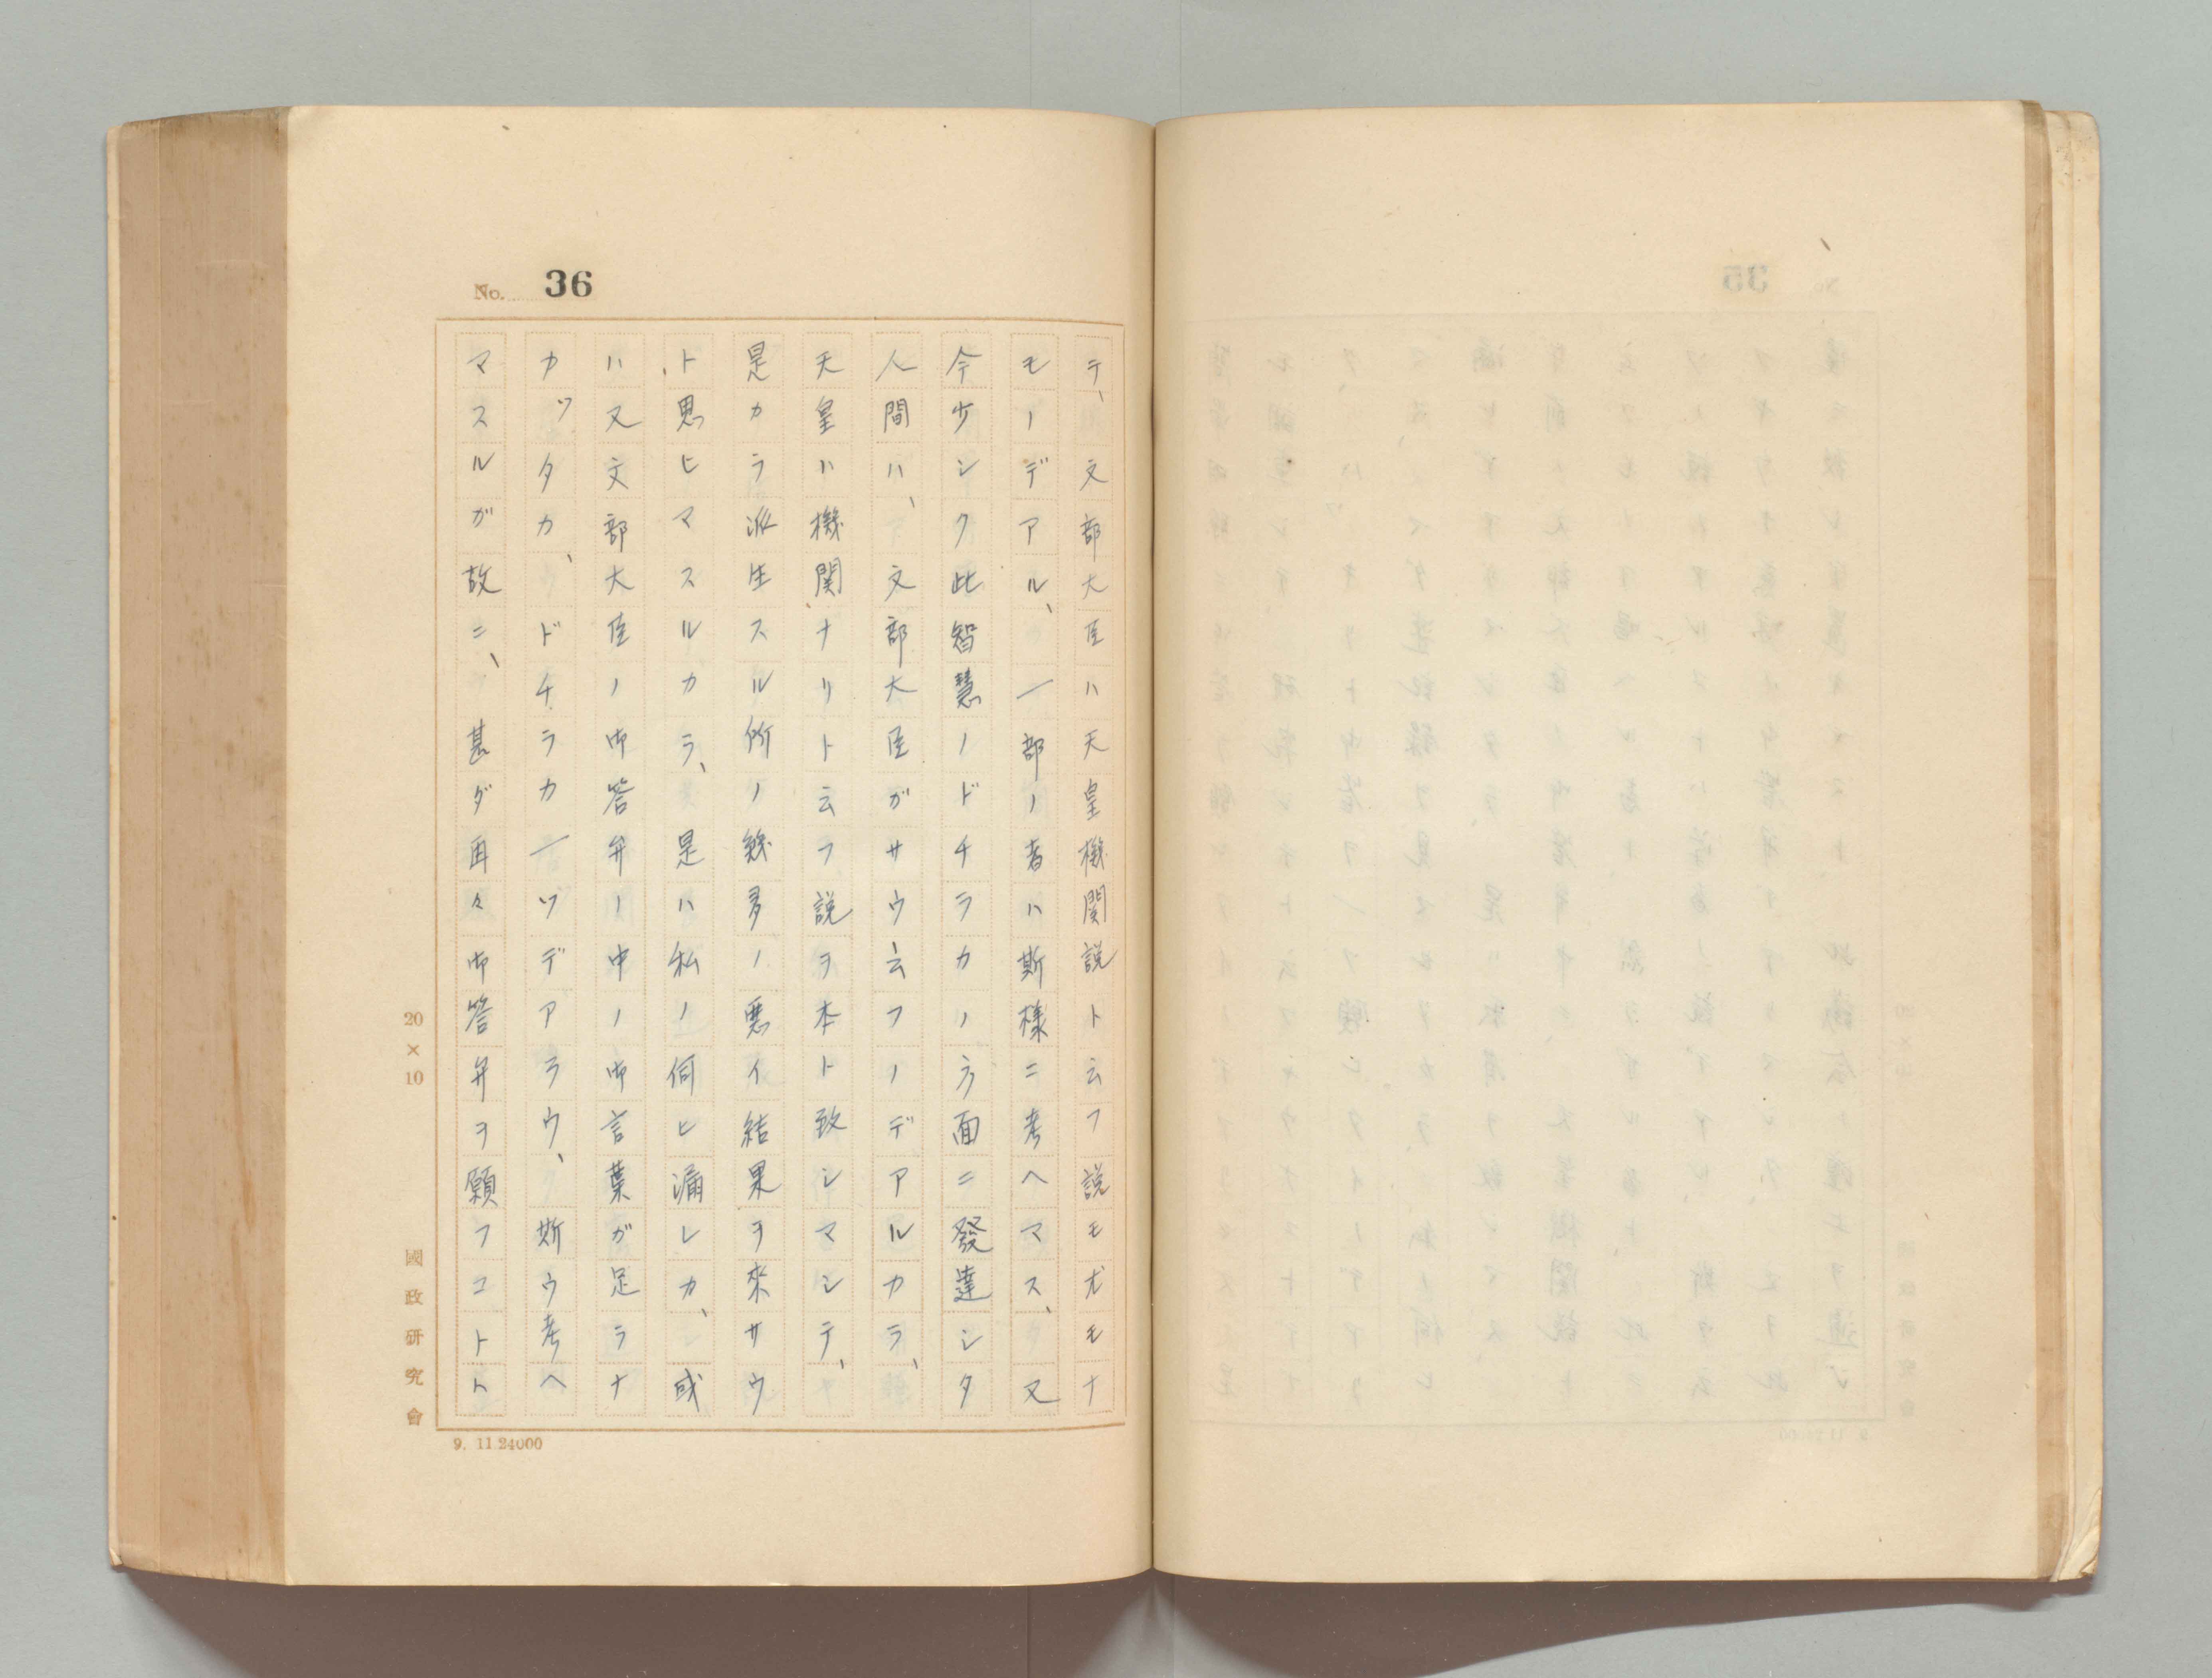 No. 36
テ、文部大臣ハ天皇機関説ト云フ説モ尤モナ
モノデアル、一部ノ者ハ斯様ニ考ヘマス、又
今少シク此智慧ノドチラカノ方面ニ發達シタ
人間ハ、文部大臣ガサウ云フノデアルカラ、
天皇ハ機関ナリト云フ説ヲ本ト致シマシテ、
是カラ派生スル所ノ幾多ノ悪イ結果ヲ來サウ
ト思ヒマスルカラ、是ハ私ノ伺ヒ漏レカ、或
ハ又文部大臣ノ御答弁ノ中ノ御言葉ガ足ラナ
カッタカ、ドチラカ一ツデアラウ、斯ウ考ヘ
マスルガ故ニ、甚ダ再々御答弁ヲ願フコトト
20×10
國政研究會
9. 11.24000